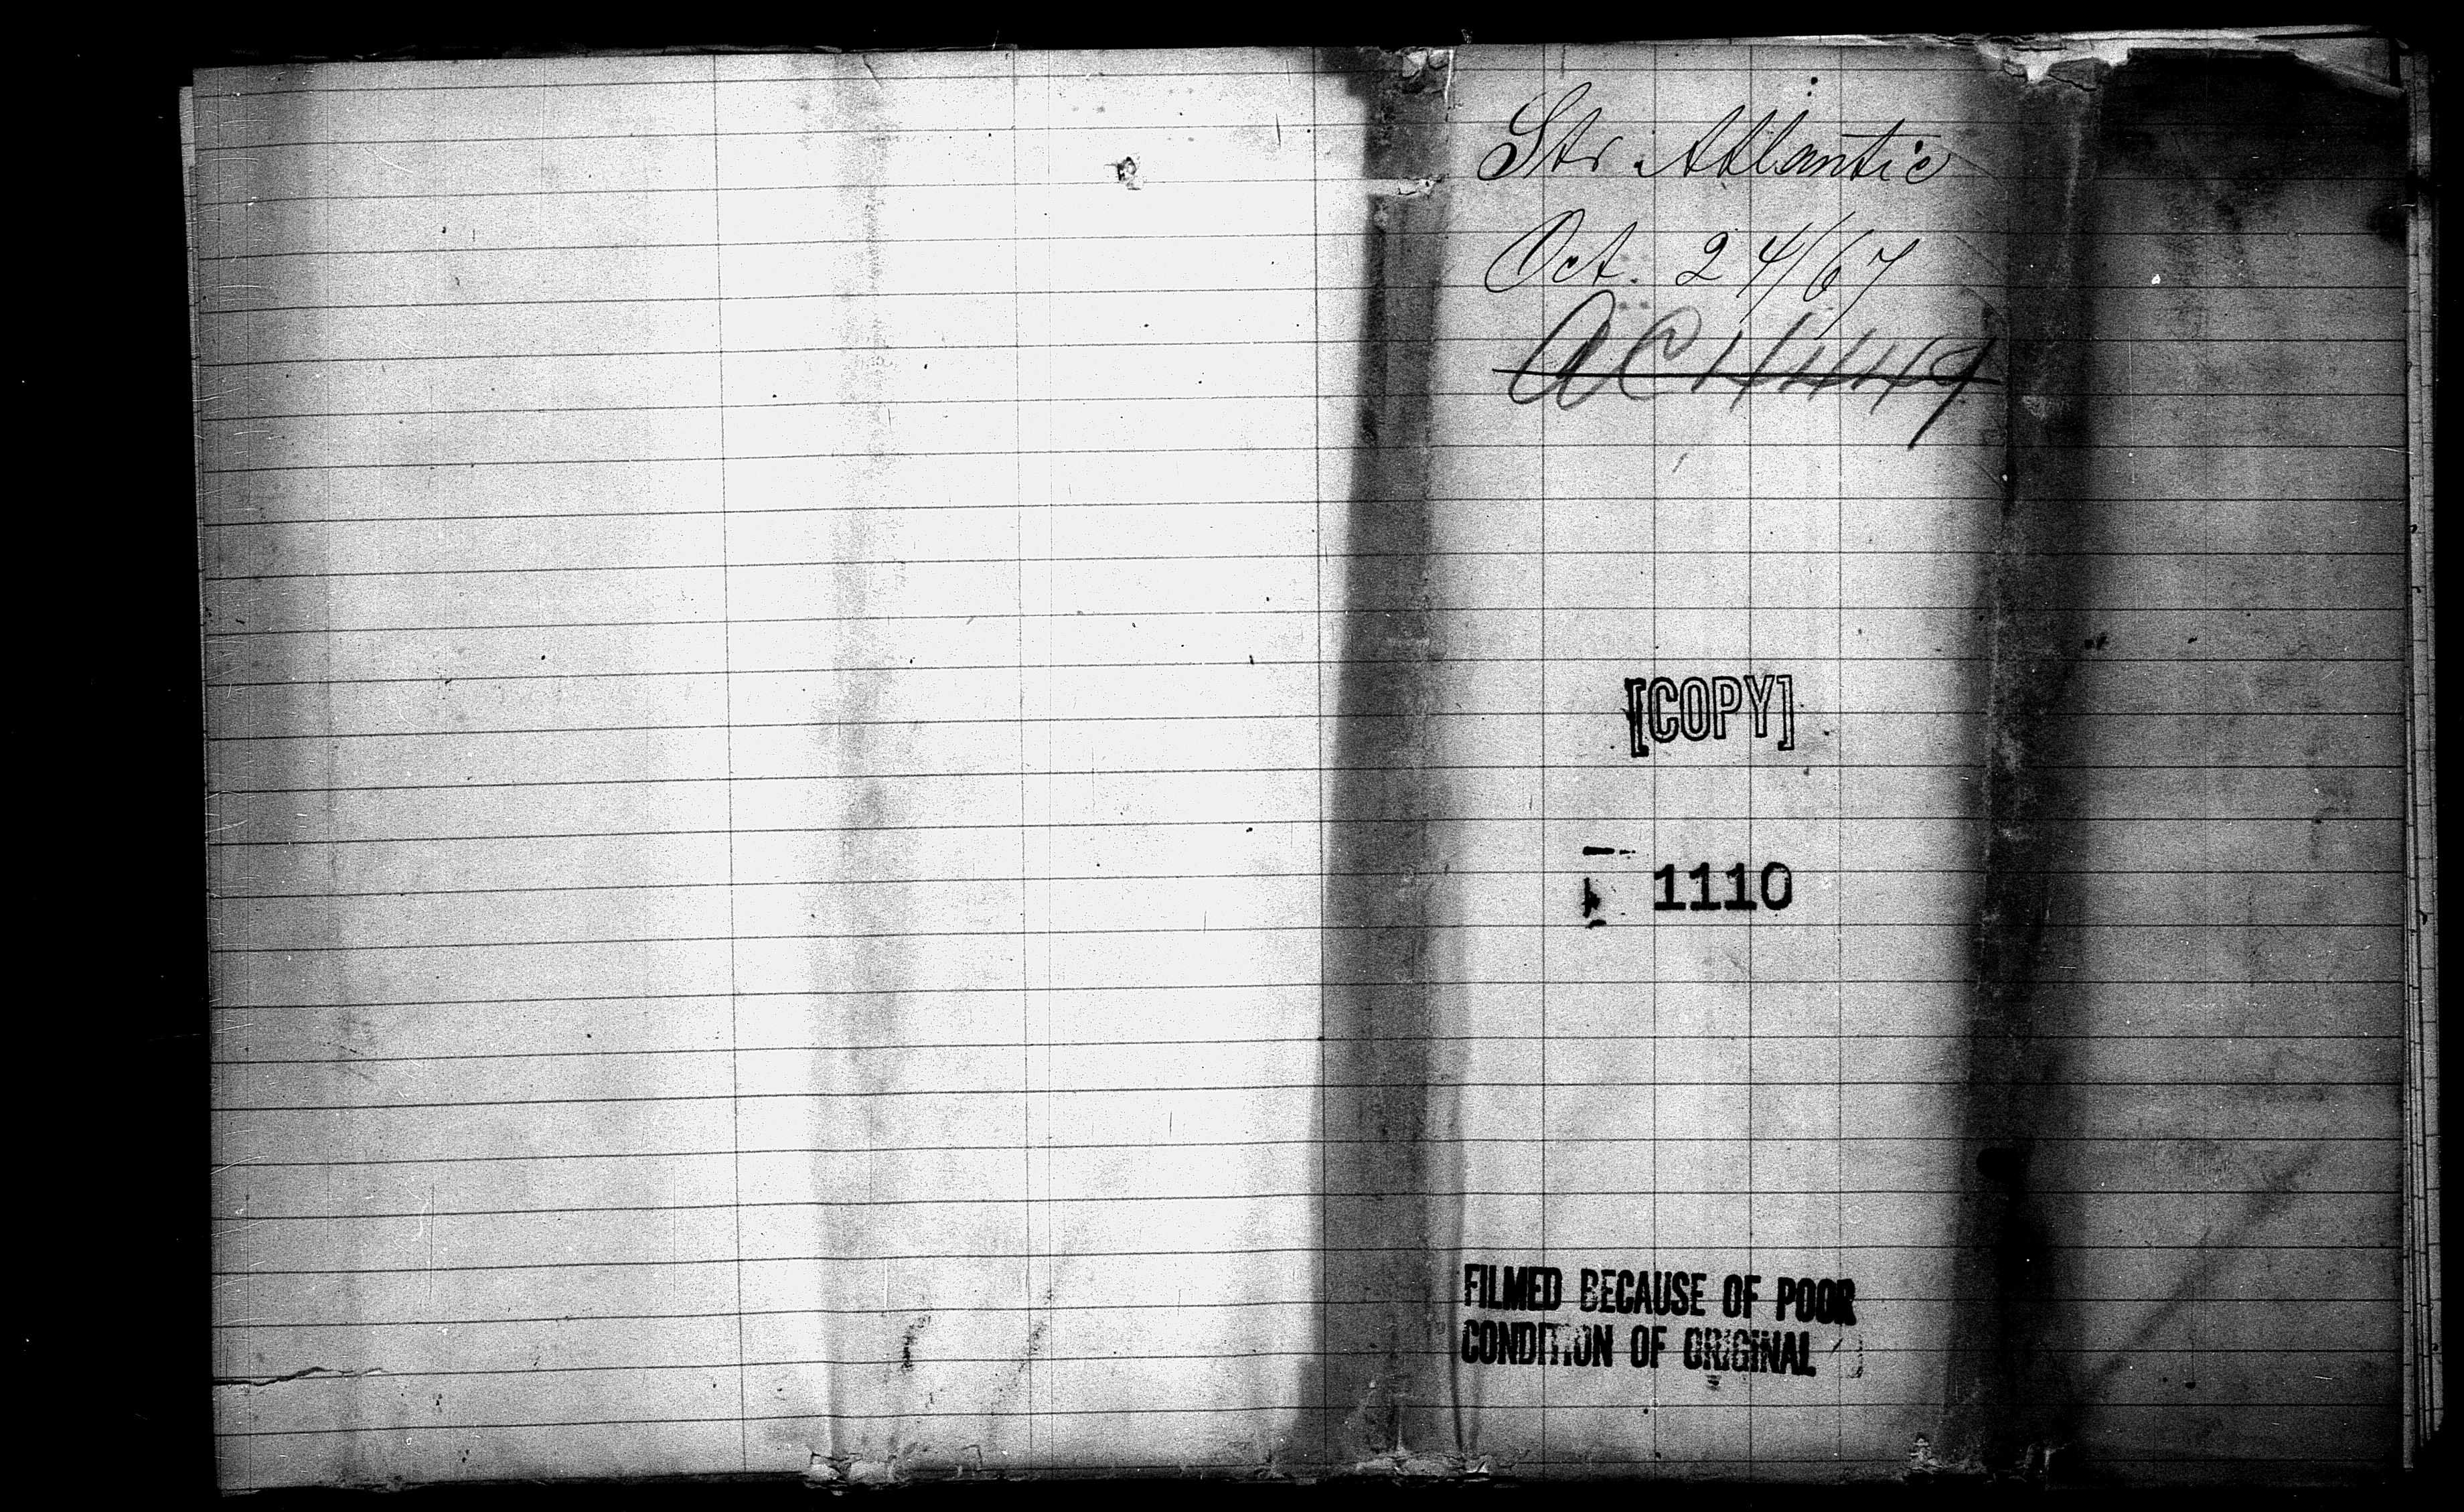 Str. Atlantic
Oct. 24/67
[COPY]
1110
FILMED BECAUSE OF POOR
CONDITION OF ORIGINAL